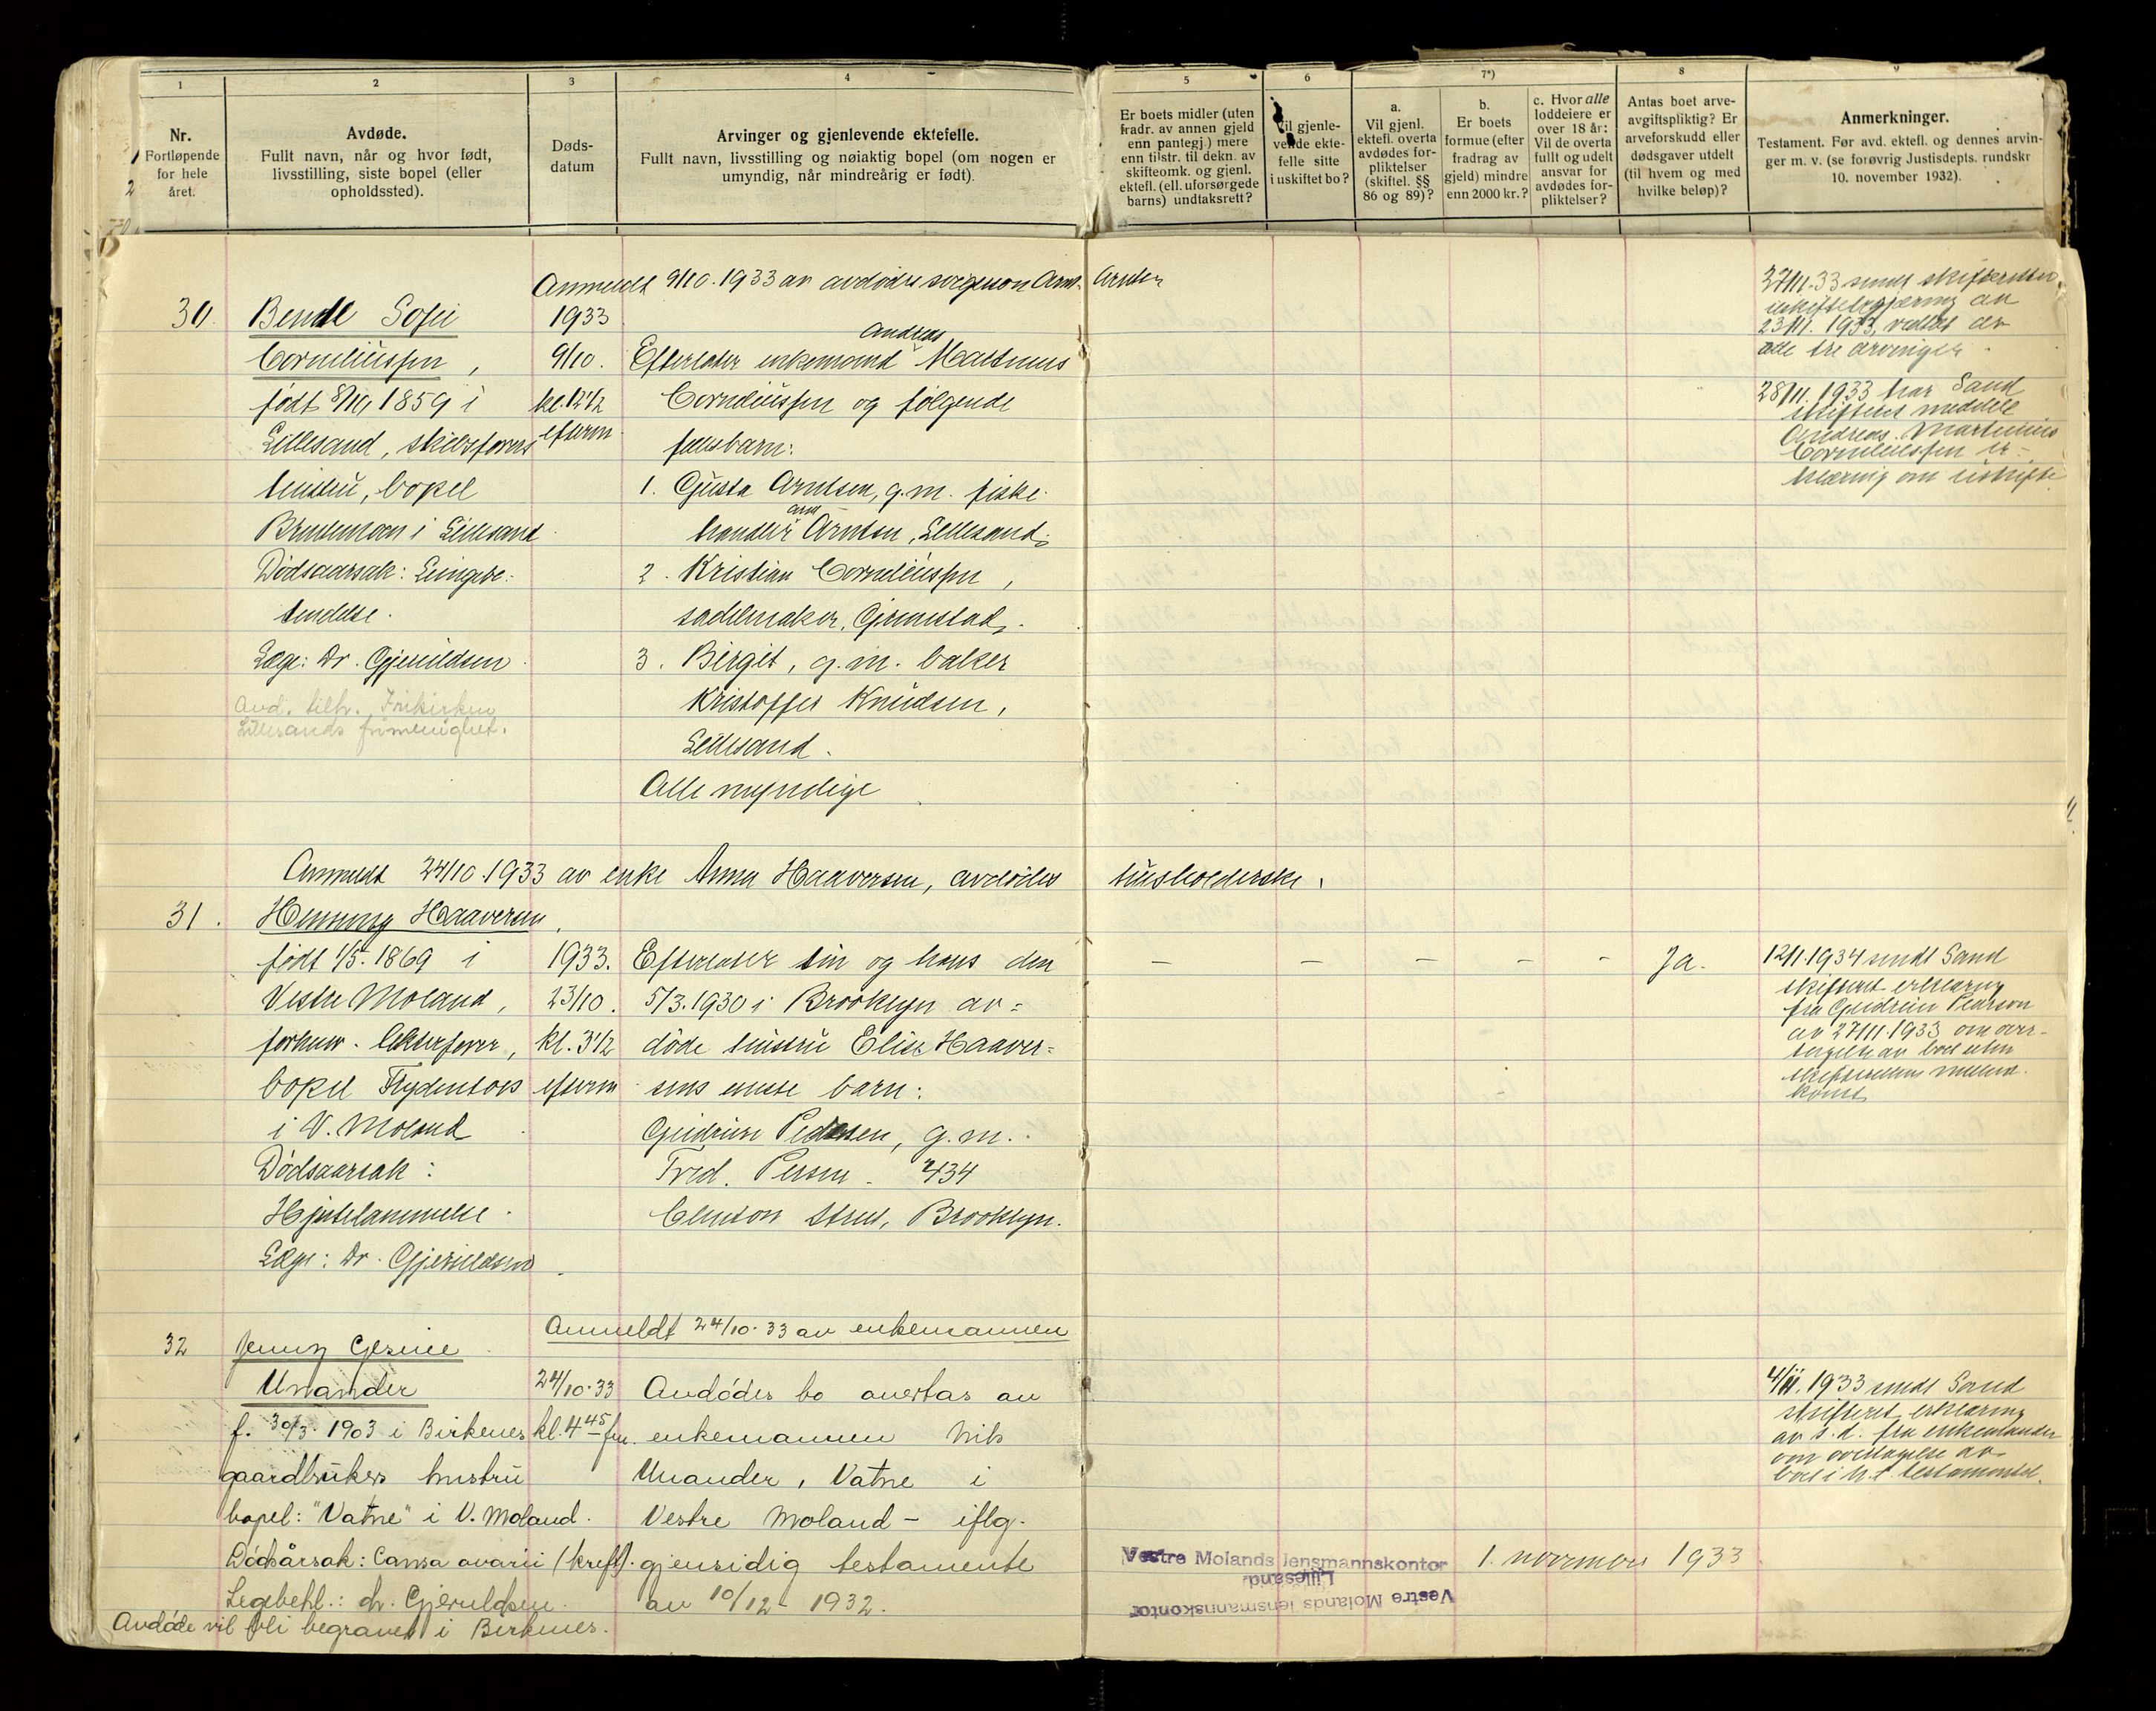 1
2
3
4
5
6
7*)
8
9
Nr.
Fortløpende
for hele
året.
Avdøde.
Fullt navn, når og hvor født,
livsstilling, siste bopel (eller
opholdssted).
Døds-
datum
Arvinger og gjenlevende ektefelle.
Fullt navn, livsstilling og nøiaktig bopel (om nogen er
umyndig, når mindreårig er født).
Er boets midler (uten
fradr. av annen gjeld
enn pantegj.) mere
enn tilstr. til dekn. av
skifteomk. og gjenl.
ektefl. (ell. uforsørgede
barns) undtaksrett?
Vil gjenle-
vende ekte-
felle sitte
i uskiftet bo?
a.
Vil gjenl.
ektefl. overta
avdødes for-
pliktelser
(skiftel. §§
86 og 89)?
b.
Er boets
formue (efter
fradrag av
gjeld) mindre
enn 2000 kr.?
c. Hvor alle
loddeiere er
over 18 år:
Vil de overta
fullt og udelt
ansvar for
avdødes for-
pliktelser?
Antas boet arve-
avgiftspliktig? Er
arveforskudd eller
dødsgaver utdelt
(til hvem og med
hvilke beløp)?
Anmerkninger.
Testament. Før avd. ektefl. og dennes arvin-
ger m. v. (se forøvrig Justisdepts. rundskr
10. november 1932).
Anmeldt 9/10. 1933 av avdødes svigersøn Arnt Arntsen
30.
Bendte Sofie
Corneliussen,
født 8/10 1859 i
Lillesand, skibsførers
hustru, bopel
i Lillesand
Dødsaarsak: Lungebe-
tendelse.
Læge: Dr. Gjeruldsen
Avd. tilh. Frikirken
Lillesands frimenighet.
1933
9/10.
kl. 12 1/2
efterm.
Andreas
Efterlater enkemand Martinius
Corneliussen og følgende
fellesbarn:
1. Gusta Arntsen, g.m. fiske-
Arnt
handler Arntsen, Lillesand.
2. Kristian Corneliussen,
sadelmaker, Grimstad.
3. Birgit, g.m. baker
Kristoffer Knudsen,
Lillesand.
Alle myndige
27/11.33 sendt skifteretten
uskiftebegjæring av
23/11. 1933, vedtatt av
alle tre arvinger.
28/11. 1933 har Sand
skifteret meddelt
Andreas Martinius
Corneliussen er-
klæring om uskifte
Anmeldt 24/10.1933 av enke Anna Haaversen, avdødes husholderske.
31.
Henning Haaversen,
født 1/5. 1869 i
Vestre Moland,
forhenv. lekterfører,
bopel Frydenlois
i V. Moland
Dødsaarsak:
Hjertelammelse.
Læge: Dr. Gjeruldsen.
1933.
23/10.
kl. 3 1/2
efterm
Efterlater sin og hans den
5/3.1930 i Brooklyn av=
døde hustru Elise Haaver=
sens eneste barn:
Gudrun Pedersen, g.m.
Fred. Person. 434
Clinton Street, Brooklyn.
— — — — - Ja.
12/1.1934 sendt Sand
skifteret erklæring
fra Gudrun Pearson
av 27/11.1933 om over-
tagelse av boet uten
skifterettens mellem-
komst
Anmeldt 24/10.33 av enkemannen
32
Jenny Gesine
Unander
f. 30/3. 1903 i Birkenes
gaardbrukers hustru
bopel: "Vatne" i V. Moland.
Dødsårsak: Cansa ovarii (kreft).
Legebehl.: dr. Gjeruldsen.
Avdøde vil bli begravet i Birkenes.
24/10.33
kl. 4 45 fm.
Avdødes bo overtas av
enkemannen Nils
Unander, Vatne i
Vestre Moland - iflg.
gjensidig testamente
av 10/12 - 1932.
4/11. 1933 sendt Sand
skifteret erklæring
av s.d. fra enkemannen
om overtagelse av
boet i h.t. testamentet.
Vestre Molands lensmannskontor
Lillesand
Vestre Molands lensmannskontor
1. november 1933